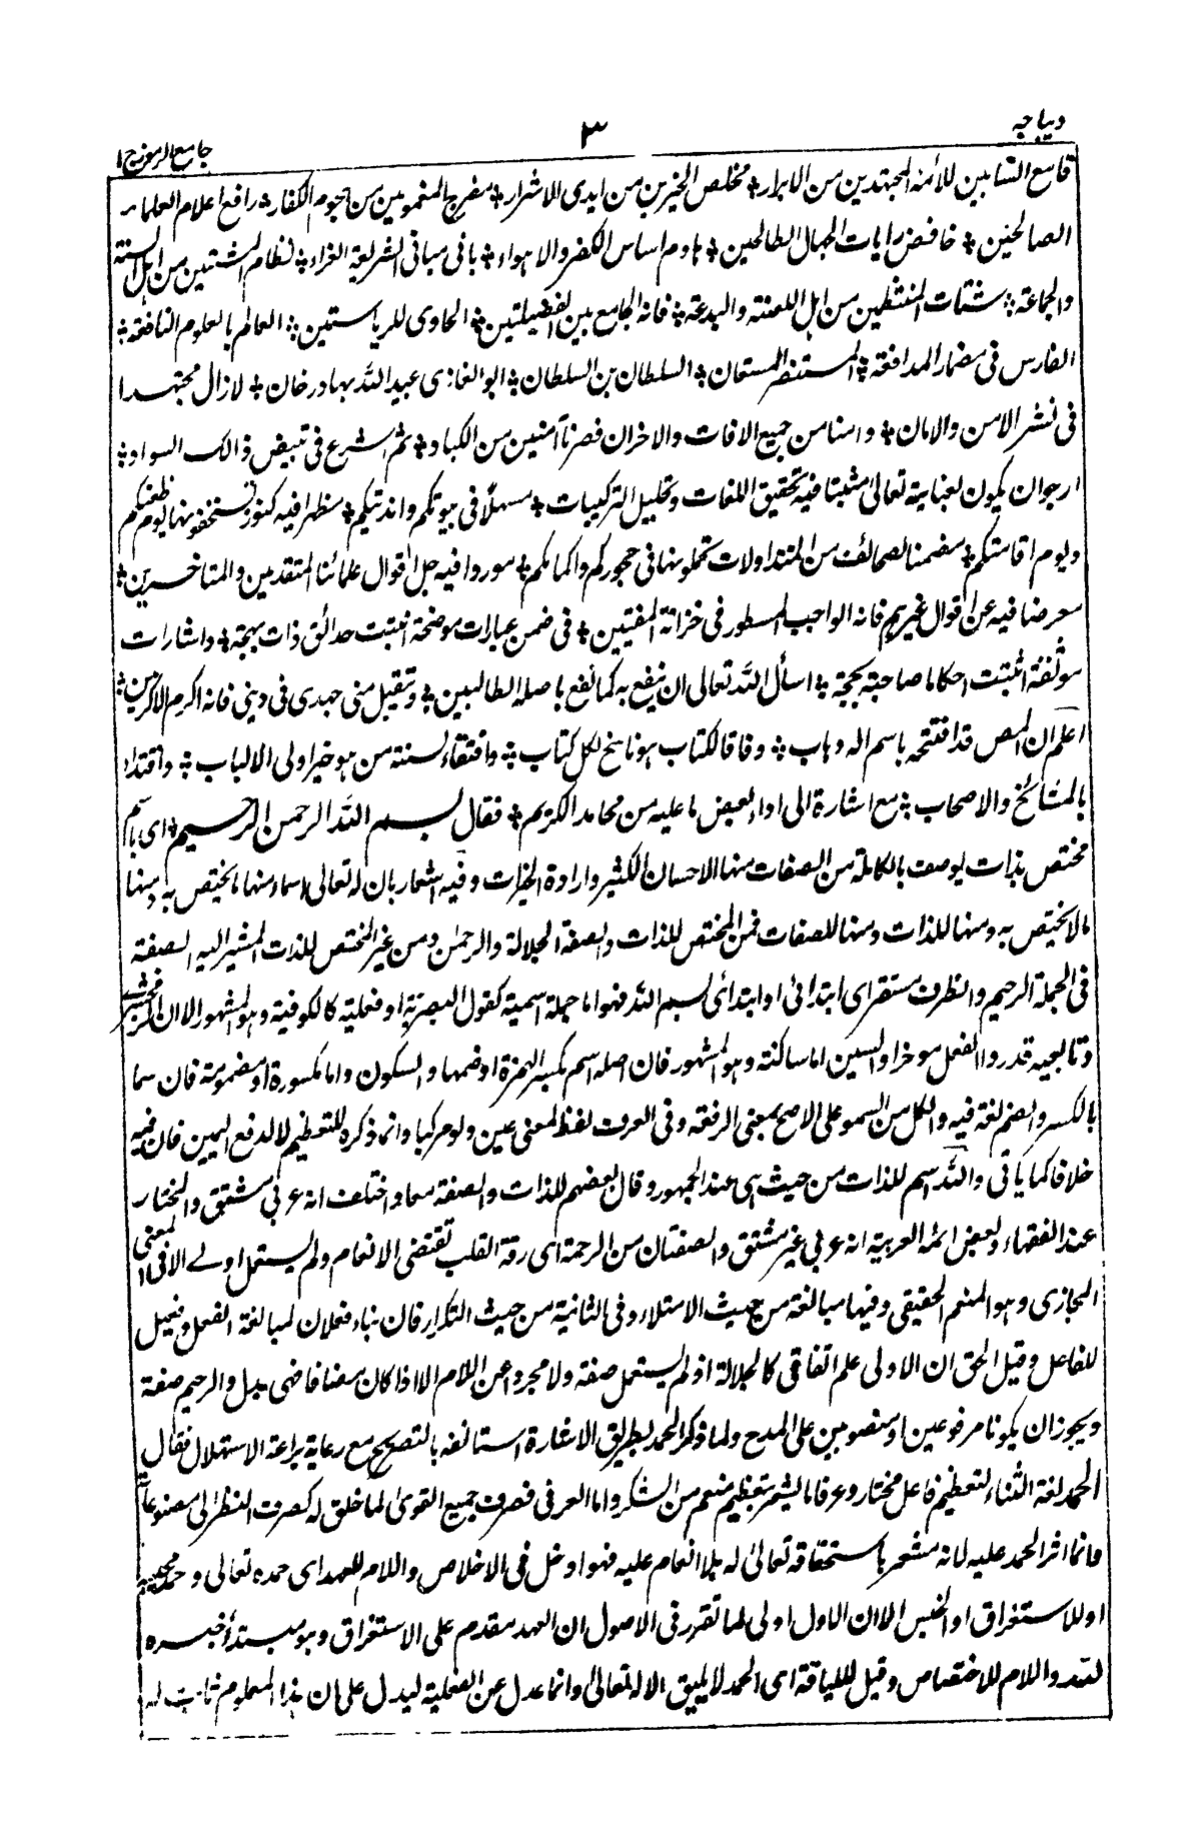 ديباجه
٣
جامع الرموز ج ١
قامع السّابين للأئمة المجتهدين من الابرار٭ مخلص الخيرين من ايدى الاشرار٭ مفرج المغمومين من هجوم الكفار٭ رافع اعلام العلماء
الصالحين٭ خافض رايات الجهال الطالحين٭ هادم اساس الكفر والاهواء٭ بانى مبانى الشريعة الغراء٭ نظام المشتتين من اهل السنة
والجماعة٭ شتات المنتظمين من اهل اللعنة والبدعة٭ فانه الجامع بين الفضيلتين٭ الحاوى للرياستين٭ العالم بالعلوم النافعة٭
الفارس فى مضمار المدافعة٭ المستنصر المستعان٭ السلطان بن السلطان٭ ابو الغازى عبيد الله بهادر خان٭ لا زال مجتهدا
فى نشر الامن والامان٭ وامنا من جميع الافات والاخران فصرنا آمنين من الكباد٭ ثم اشرع فى تبييض ذالك السواد٭
ارجو ان يكون لعناية تعالى مثبتا فيه تحقيق اللغات وتحليل التركيبات٭ مسهلاً فى بيوتكم وانديتكم٭ مظهرا فيه كنوز تستخفونها يوم ظعنكم
ويوم اقامتكم٭ مضمنا لصحائف من المتداولات تحملونها فى حجوركم واكمامكم٭ موردا فيه جل اقوال علمائنا المتقدمين والمتاخرين٭
معرضا فيه عن اقوال غيرهم فانه الواجب المسطور فى خزانة المفتيين٭ فى ضمن عبارات موضحة انبتت حدائق ذات بهجة٭ واشارات
موثقة اثبتت احكاما صاحبة بحجة٭ اسأل الله تعالى ان ينفع به كما نفع باصله الطالبين٭ وتقبل منى جهدى فى دينى فانه اكرم الاكرمين٭
اعلم ان المص قد افتتحه باسم اله وهاب٭ وفاقا لكتاب هو ناسخ لكل كتاب٭ واقتفاء لسنة من هو خير اولى الالباب٭ واقتداء
بالمشائخ والاصحاب٭ مع اشارة الى اداء بعض ما عليه من محامد الكريم٭ فقال بسم الله الرحمن الرحيم٭ اى باسم
مختص بذات يوصف بالكاملة من الصفات منها الاحسان الكثير وارادة الخيرات وفيه اشعار بان له تعالى اسماء منها ما يختص به ومنها
ما لا يختص به ومنها للذات ومنها للصفات فمن المختص للذات والصفة الجلالة والرحمن ومن غير المختص للذات المشير اليه الصفة
فى الجملة الرحيم والظرف مستقر اى ابتدائى او ابتدائى بسم الله فهو اما جملة اسمية كقول البصرية او فعلية كالكوفية وهو المشهور الا ان الزمخشرى
وتابعيه قدروا الفعل موخرا والسين اما ساكنة وهو المشهور فان اصله اسم بكسر الهمزة او ضمها والسكون واما مكسورة او مضمومة فان سما
بالكسر والضم لغة فيه والكل من السمو على الاصح بمعنى الرفعة وفى العرف لفظ لمعنى عين ولو مركبا وانما ذكره للتعظيم لا لدفع اليمين فان فيه
خلافا كما ياتى والله اسم للذات من حيث هى عند الجمهور وقال بعضهم للذات والصفة معا واختلف انه عربى مشتق والمختار
عند الفقهاء وبعض ائمة العربية انه عربى غير مشتق والصفتان من الرحمة اى رقة القلب تقتضى الانعام ولم يستعمل اولے الا فى المعنى
المجازى وهو المنعم الحقيقى وفيها مبالغة من حيث الامتلاء وفى الثانية من حيث التكرار فان بناء فعلان لمبالغة الفعل وفعيل
للفاعل وقيل الحق ان الاولى علم اتفاقى كالجلالة اذ لم يستعمل صفة ولا مجردا عن اللام الا اذا كان مضافا فهى بدل والرحيم صفة
ويجوز ان يكونا مرفوعين او منصوبين على المدح ولما ذكر الحمد بطريق الاشارة استانفه بالتصريح مع رعاية براعة الاستهلال فقال
الحمد لغة الثناء لتعظيم فاعل مختار وعرفا ما يشعر بتعظيم منعم من الشكر واما العرفى فصرف جميع القوى لما خلق له كصرف النظر الى مصنوعاته
وانما اثر الحمد عليه لانه مشعر باستحقاقه تعالى له بلا انعام عليه فهو ادخل فى الاخلاص واللام للعهد اى حمده تعالى وحمد محبيه
او للاستغراق او الجنس الا ان الاول اولى لما تقرر فى الاصول ان العهد مقدم على الاستغراق وهو مبتدأ خبره
لله واللام للاختصاص وقيل للياقة اى الحمد لا يليق الا له تعالى وانما عدل عن الفعلية ليدل على ان هذا المعلوم ثابت له